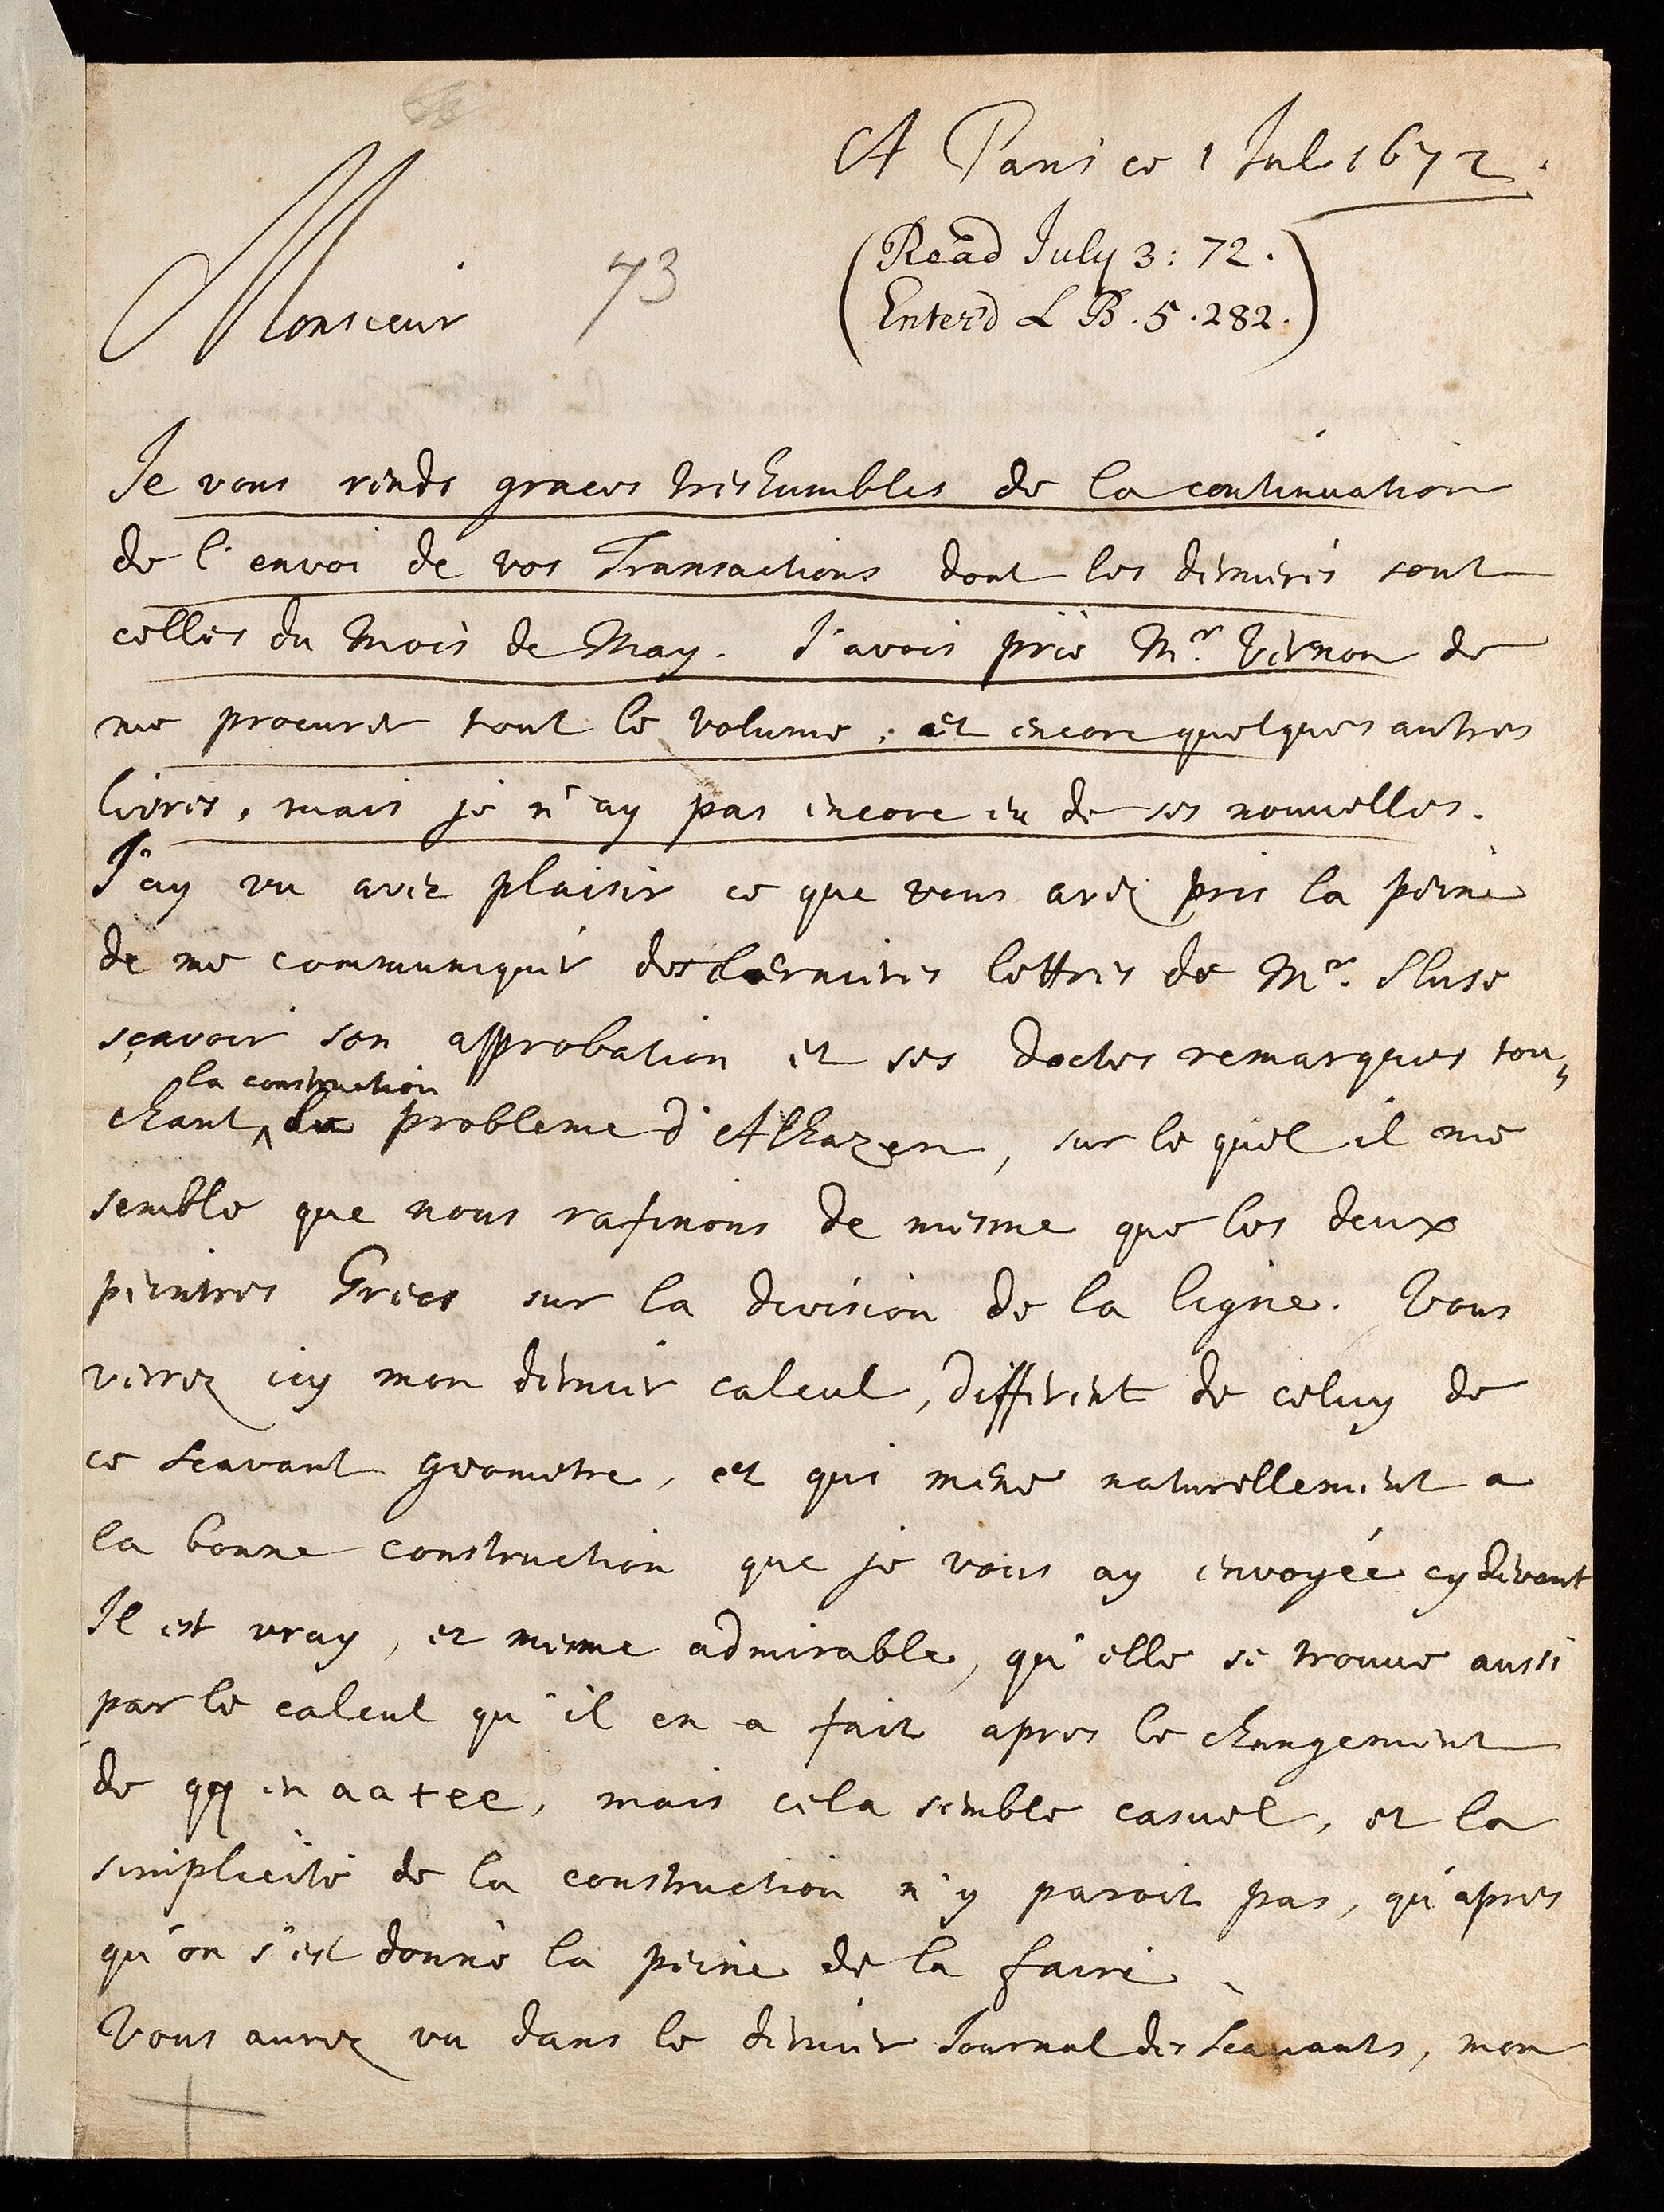 A Paris ce 1 Jul. 1672.
(Read July 3: 72.
Enter'd L B. 5. 282.)
73
Monsieur
Je vous rends graces treshumbles de la continuation
de l'envoi de vos Transactions dont les dernieres sont
celles du Mois de May. J'avois priè Mr. Vernon de
me procurer tout le volume, et encore quelques autres
livres, mais je n'ay pas encore eu de ses nouvelles.
J'ay vu avec plaisir ce que vous avez pris la peine
de me communiquer des dernieres lettres de Mr. Sluse
sçavoir son approbation et ses doctes remarques tou„
la construction
chant ^ du probleme d'Alhazen, sur le quel il me
semble que nous rafinons de mesme que les deux
peintres Grecs sur la division de la ligne. Vous
verrez icy mon dernier calcul, different de celuy de
ce scavant geometre, et qui mene naturellement a
la bonne construction que je vous ay envoyée cydevant
Il est vray, et mesme admirable, qu'elle se trouve aussi
par le calcul qu'il en a fait apres le changement
de qq en aa+ee, mais cela semble casuel, et la
simplicité de la construction n'y paroit pas, qu'apres
qu'on s'est donnè la peine de la faire.
Vous aurez vu dans le dernier Journal des Scavants, mon